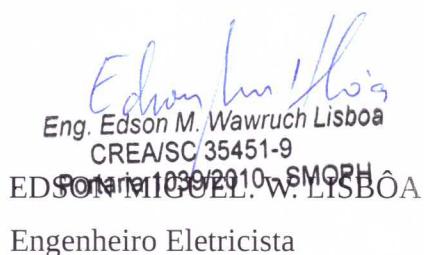 Eng. Edson M. Wawruch Lisboa
CREA/SC 35451-9
Portaria 1039/2010 - SMOPH
EDSON MIGUEL. W. LISBÔA
Engenheiro Eletricista